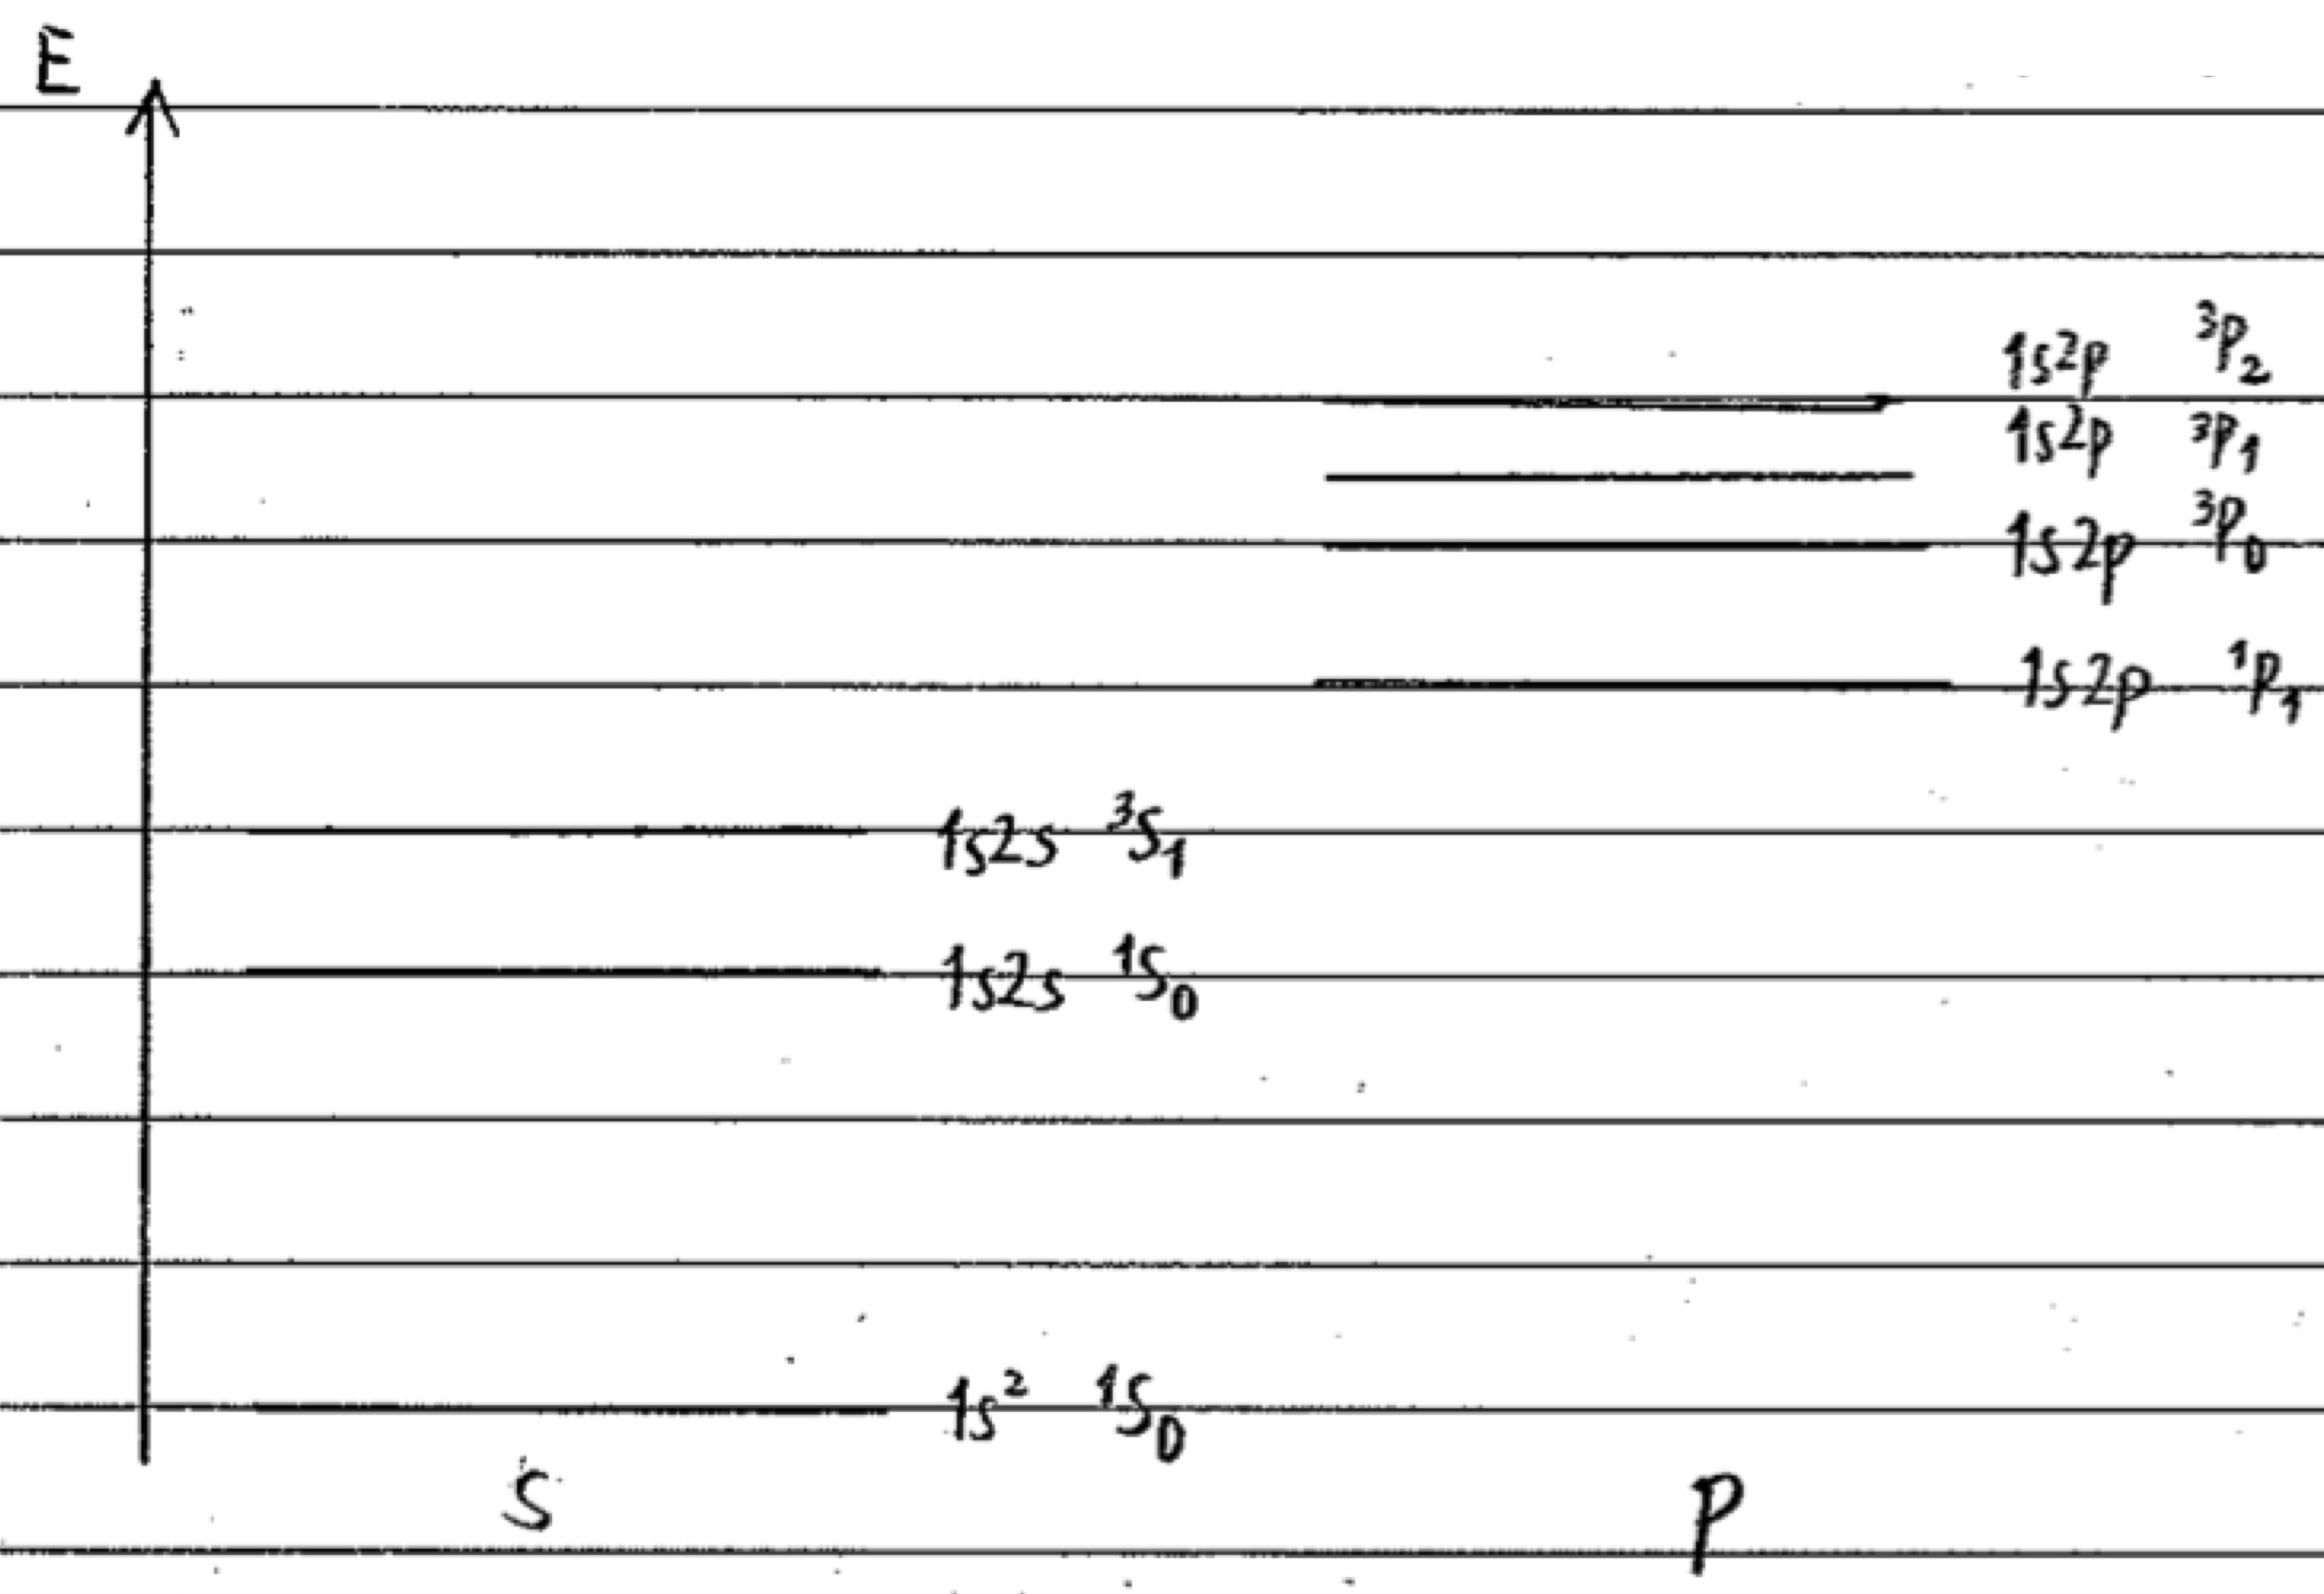 E
1s2p ³P₂
1s2p ³P₁
1s2p ³P₀
1s2p ¹P₁
1s2s ³S₁
1s2s ¹S₀
1s² ¹S₀
S P